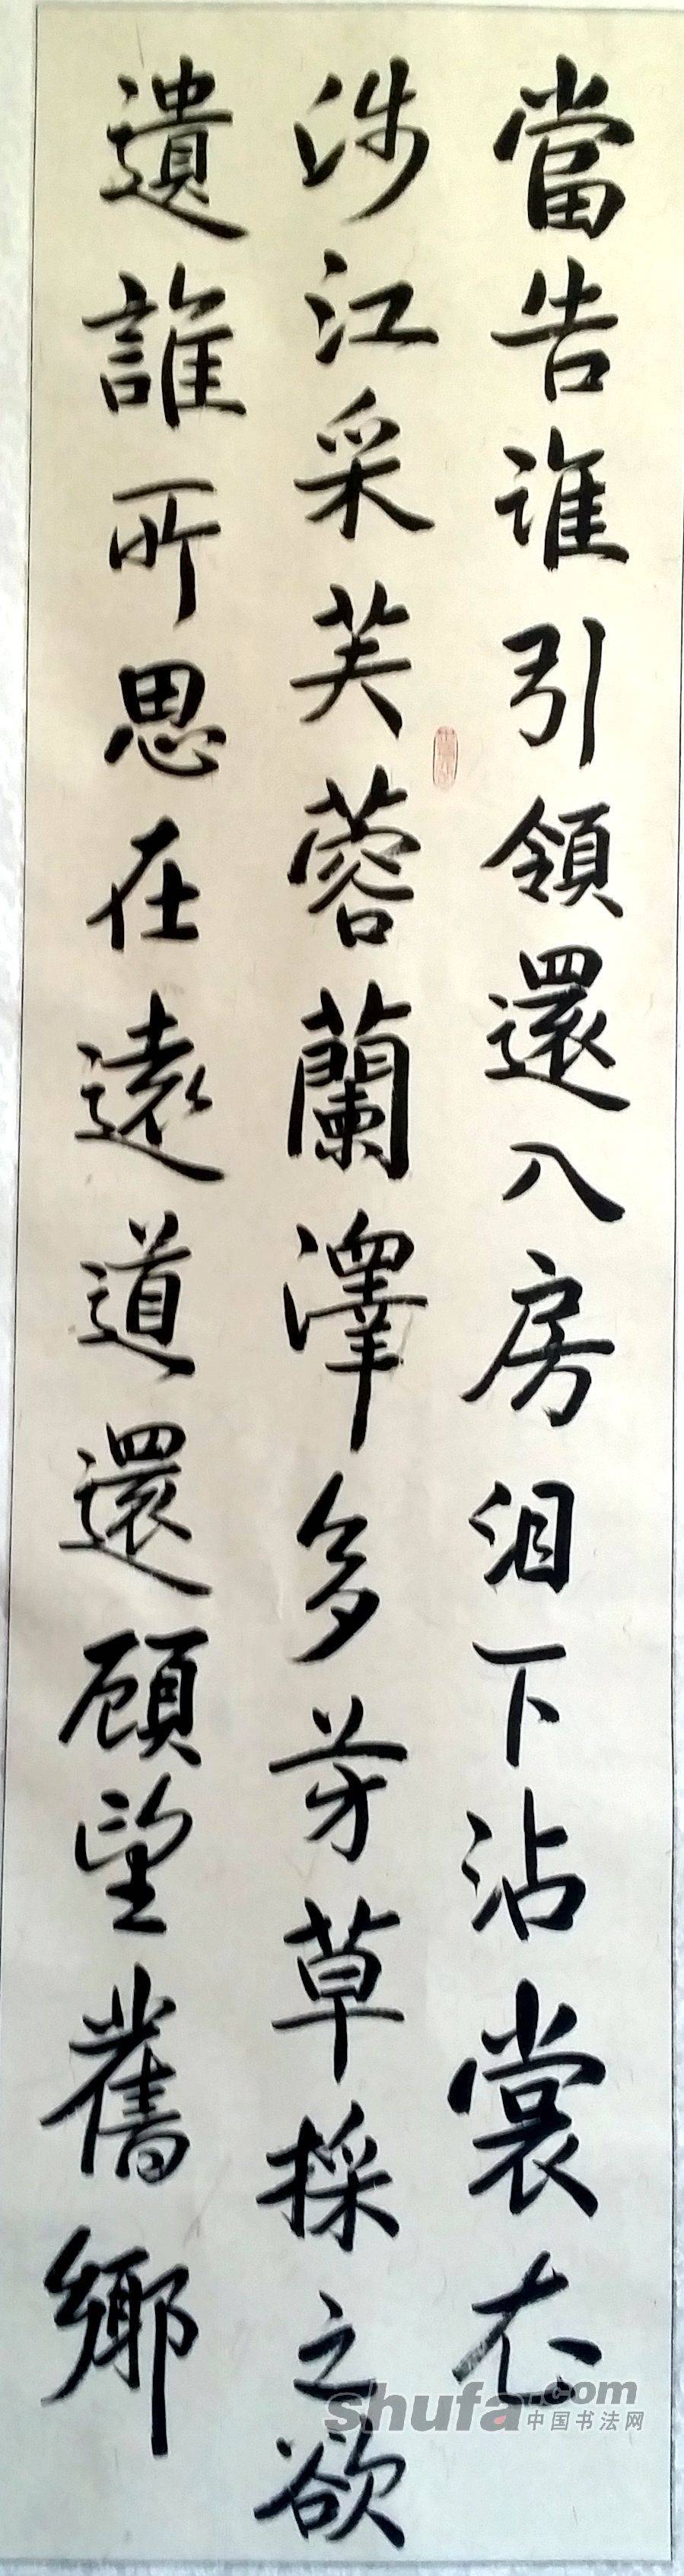 當告谁引領還入房泪下沾裳衣
涉江采芙蓉蘭澤多芳草採之欲
遺誰所思在遠道還顧望舊鄉
shufa.com
中国书法网